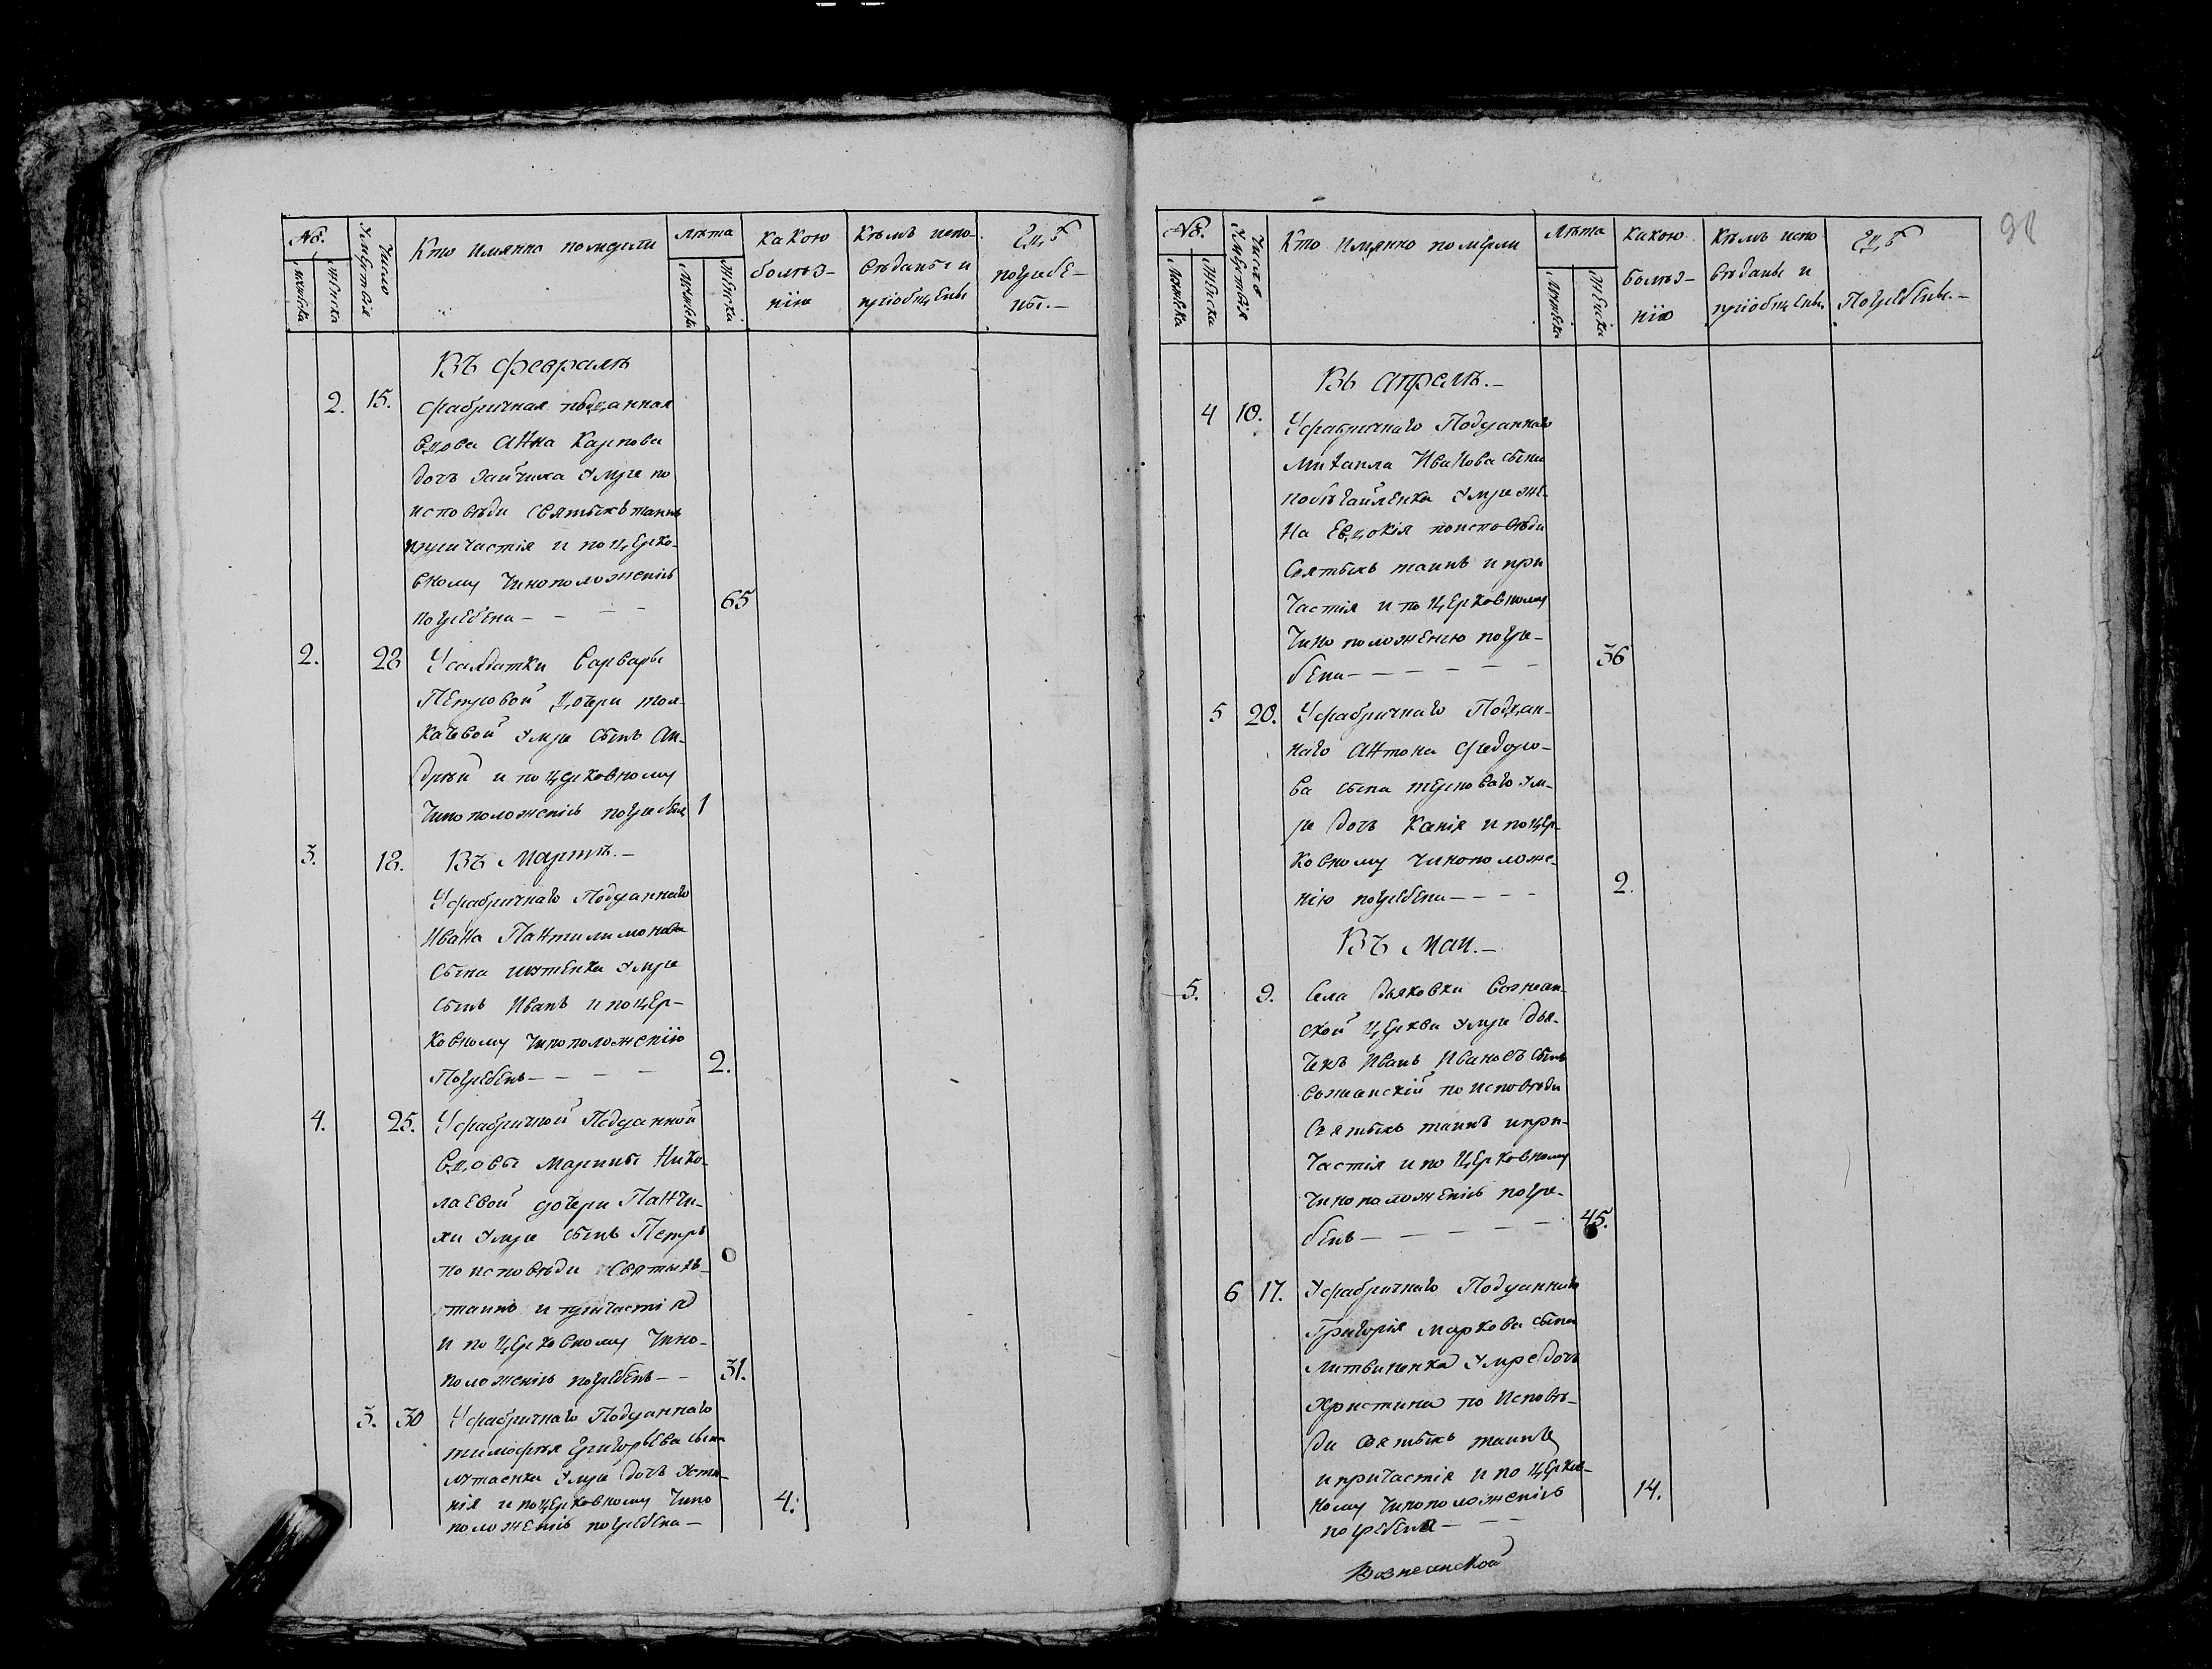 №. Число умерствія Кто имянно померли лѣта какою болѣз-нію Кѣмъ испо-вѣданы и пріобщены Гдѣ погребе-ны.-
мужеска женска мужеска женска
Въ февралѣ
2. 15. фабричная подданная
вдова Анна Карпова
дочь Зайчиха умре по
исповѣди святыхъ таинъ
причастія и по церко-
вному чиноположенію
погребена - - - 65
2. 28 У салдатки Варвары
Петровой дочери тол-
качевой умре сынъ Ан-
дрей и по церковному
чиноположенію погребенъ 1
3. 18. Въ Мартѣ.-
У фабричнаго Подданнаго
Ивана Пантилимонова
сына умре
сынъ Иванъ и по цер-
ковному чиноположенію
Погребенъ - - - - 2.
4. 25. У фабричной Подданной
вдовы Марины Нико-
лаевой дочери Панчи-
хи умре сынъ Петръ
по исповѣди святыхъ
таинъ и причастія
и по церковному чино-
положенію погребенъ - - 31.
3. 30 У фабричнаго Подданнаго
тимофѣя Григорьева сына
умре дочь Усти-
нія и по церковному чино
положенію погребена - 4.
98
№. Число умерствія Кто имянно померли Лѣта какою болѣз-нію Кѣмъ испо-вѣданы и пріобщены Гдѣ Погребены.-
мужеска женска мужеска женска
Въ Апрелѣ.-
4 10. У фабричнаго Подданнаго
Михаила Иванова сына
умре же-
на Евдокія по исповѣди
Святыхъ таинъ и при
частія и по церковному
чино положенію погре-
бена - - - - - 36
5 20. У фабричнаго Поддан-
наго Антона Федоро-
ва сына терноваго ум-
ре дочь Ксенія и по цер-
ковному чиноположе-
нію погребена - - - - 2.
Въ Маи.-
5. 9. Села Дьяковки Вознесен-
ской церкви умре дья-
чекъ Иванъ Ивановъ сынъ
по исповѣди
Святыхъ таинъ и при-
частія и по церковному
чиноположенію погре-
бенъ - - - - - 45.
6 17. У фабричнаго Подданнаго
Григорія Маркова сына
Литвиненка умре дочь
Христина по исповѣ-
ди святыхъ таинъ
и причастія и по церков-
ному чиноположенію
погребена - - - 14.
Вознесенской